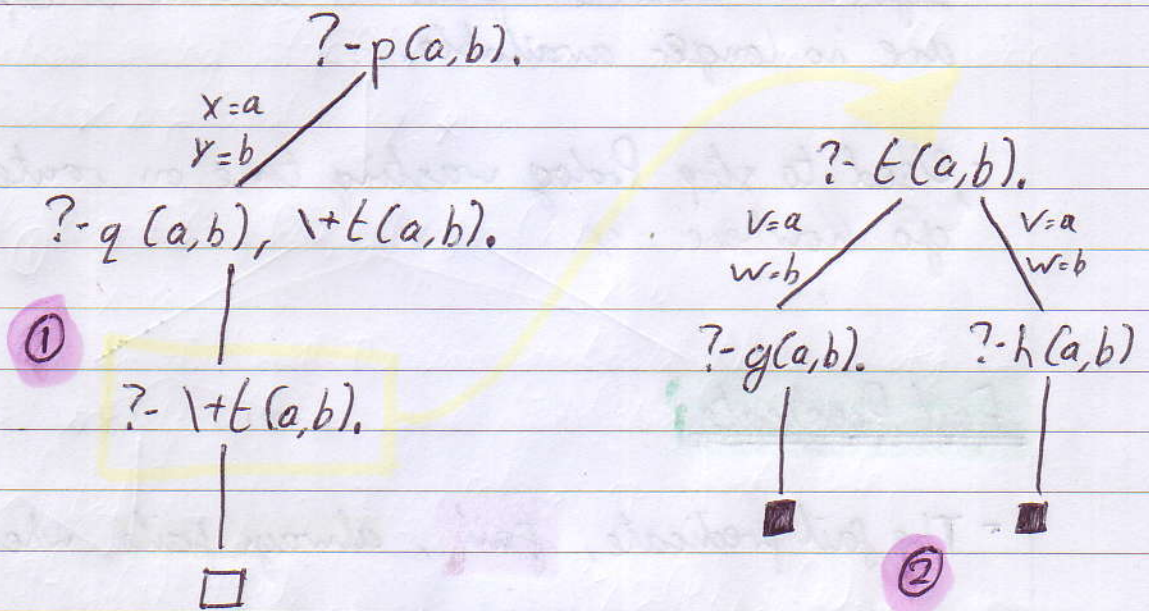 ?- p(a,b).
x=a
y=b
?- q(a,b), \+t(a,b).
①
?- \+t(a,b).
?- t(a,b).
v=a
w=b
v=a
w=b
?- g(a,b).
?- h(a,b)
②